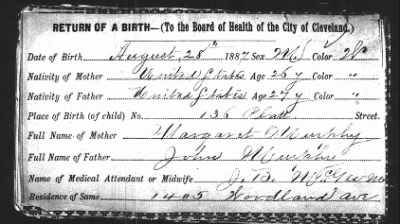 RETURN OF A BIRTH—(To the Board of Health of the City of Cleveland.)
Date of Birth August 28th 1887 Sex M Color W
Nativity of Mother United States Age 26 y Color "
Nativity of Father United States Age 27 y Color "
Place of Birth (of child) No. 136 Platt Street.
Full Name of Mother Margaret Murphy
Full Name of Father John Murphy
Name of Medical Attendant or Midwife J. B. McGee
Residence of Same 1405 Woodland Ave